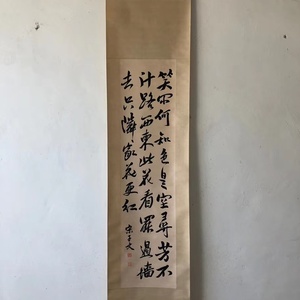 笑问何知色是空尋芳不
计路西東此花看罷過墙
去只隣家花更红
宋子文